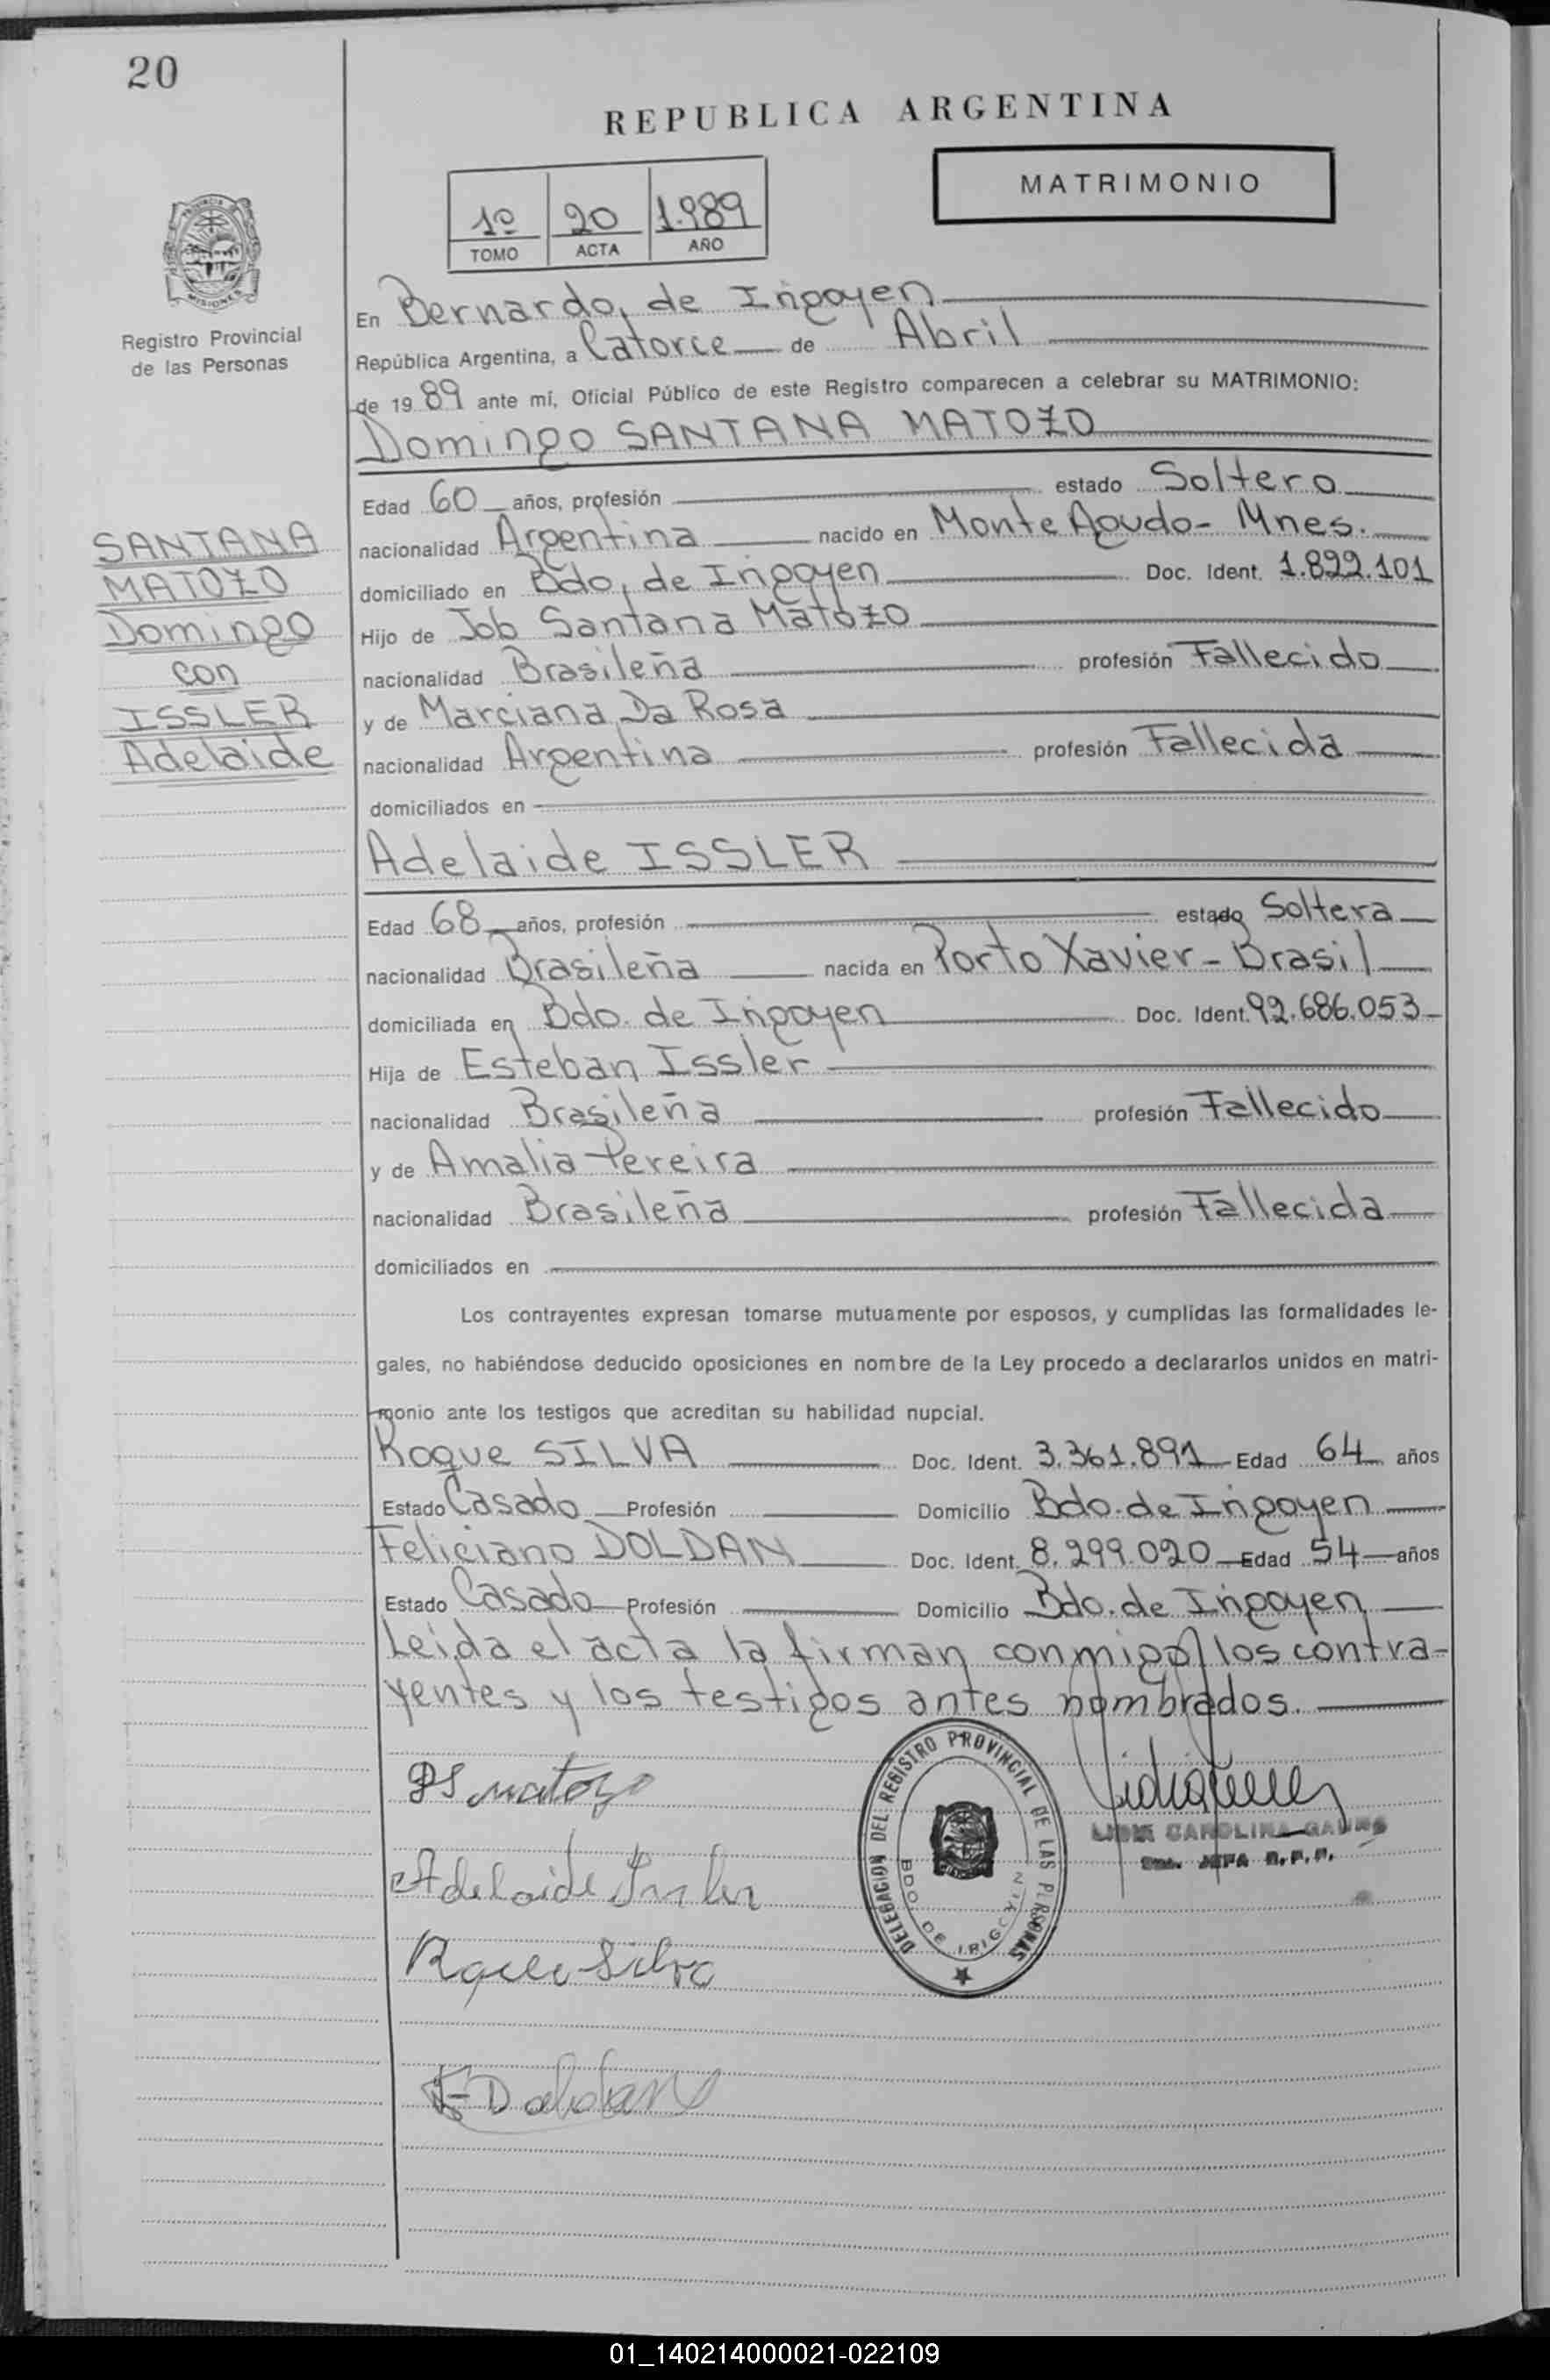 20
REPUBLICA ARGENTINA
MATRIMONIO
1º 20 1.989
TOMO ACTA AÑO
PROVINCIA DE
MISIONES
Registro Provincial
de las Personas
En Bernardo, de Irigoyen
República Argentina, a Catorce de Abril
de 1989 ante mí, Oficial Público de este Registro comparecen a celebrar su MATRIMONIO:
Domingo SANTANA MATOZO
Edad 60 años, profesión estado Soltero
SANTANA
MATOZO
Domingo
con
ISSLER
Adelaide
nacionalidad Argentina nacido en Monte Agudo - Mnes.
domiciliado en Bdo, de Irigoyen Doc. Ident. 1.822.101
Hijo de Job Santana Matozo
nacionalidad Brasileña profesión Fallecido
y de Marciana Da Rosa
nacionalidad Argentina profesión Fallecida
domiciliados en
Adelaide ISSLER
Edad 68 años, profesión estado Soltera
nacionalidad Brasileña nacida en Porto Xavier - Brasil
domiciliada en Bdo. de Irigoyen Doc. Ident. 92.686.053
Hija de Esteban Issler
nacionalidad Brasileña profesión Fallecido
y de Amalia Pereira
nacionalidad Brasileña profesión Fallecida
domiciliados en
Los contrayentes expresan tomarse mutuamente por esposos, y cumplidas las formalidades le-
gales, no habiéndose deducido oposiciones en nombre de la Ley procedo a declararlos unidos en matri-
monio ante los testigos que acreditan su habilidad nupcial.
Roque SILVA Doc. Ident. 3.361.891 Edad 64 años
Estado Casado Profesión Domicilio Bdo. de Irigoyen
Feliciano DOLDAN Doc. Ident. 8.299.020 Edad 54 años
Estado Casado Profesión Domicilio Bdo. de Irigoyen
Leida el acta la firman conmigo los contra-
yentes y los testigos antes nombrados.
DS matozo
Adelaide Issler
Roque Silva
F Doldan
DELEGACION DEL REGISTRO PROVINCIAL DE LAS PERSONAS
BDO. DE IRIGOYEN
CAROLINA
JEFA R.P.P.
01_140214000021-022109